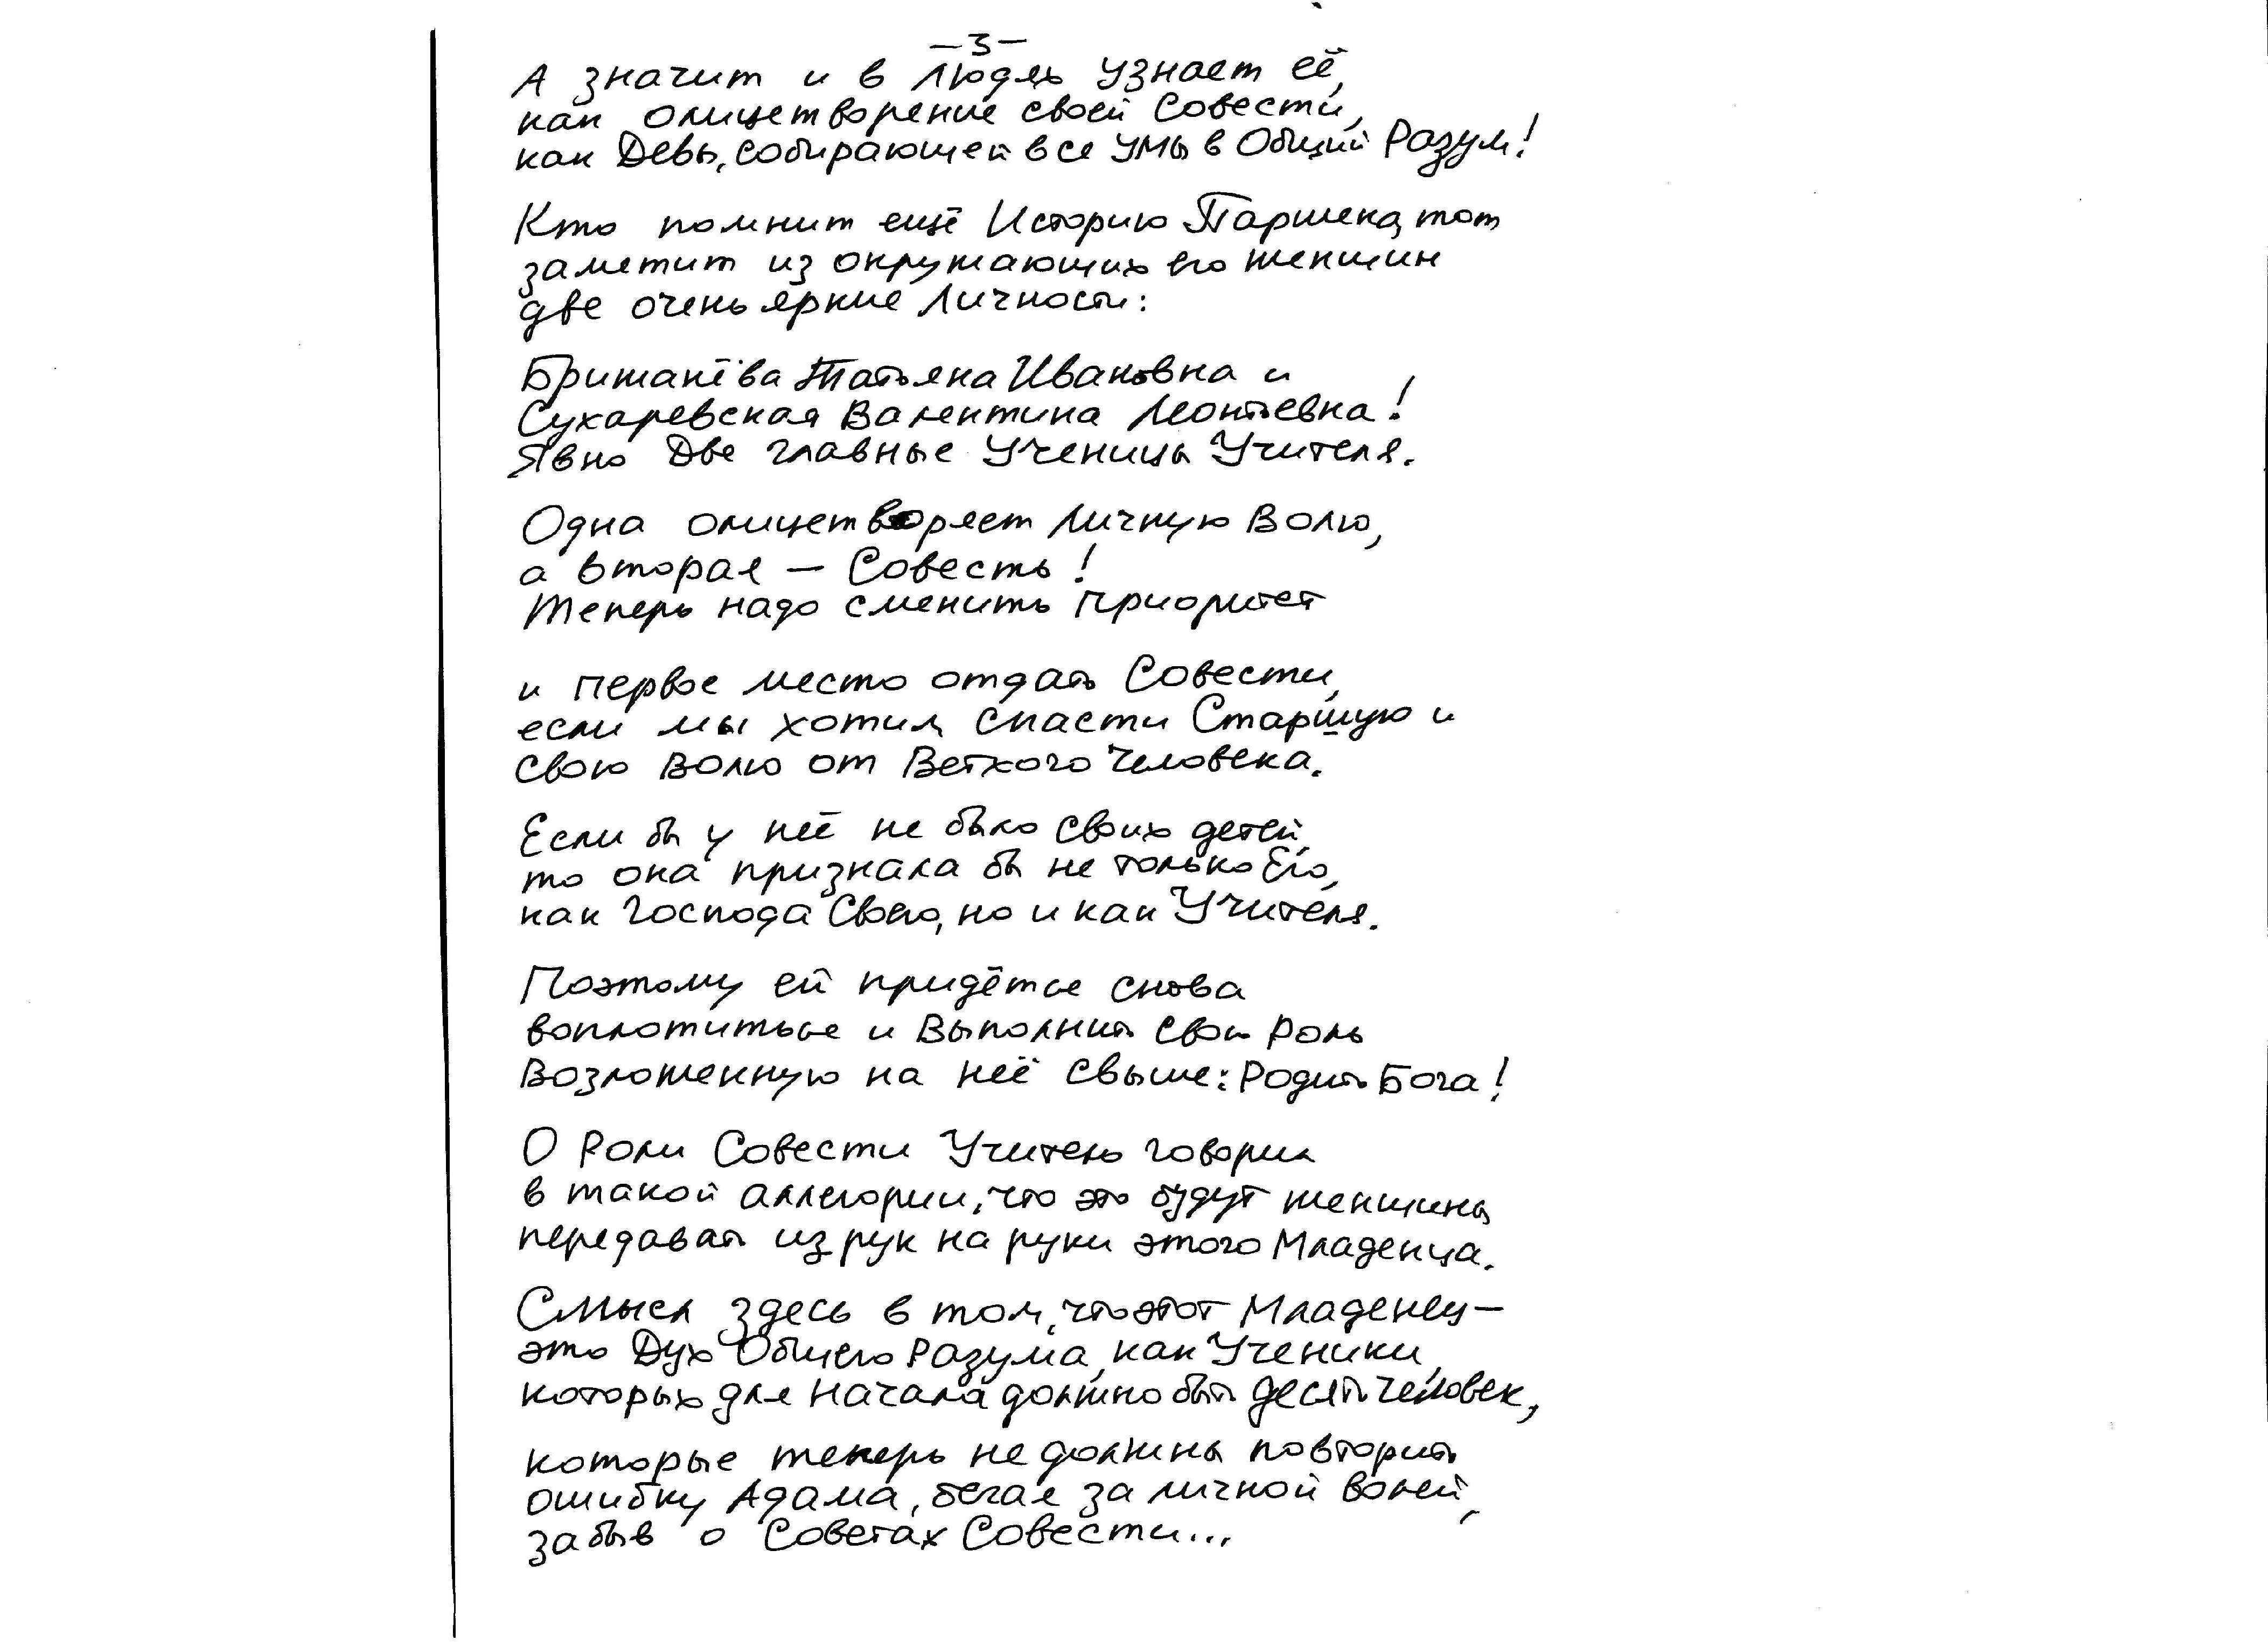 -3-
А значит и в Людях узнает её,
как олицетворение своей Совести,
как Девы, собирающей все умы в Общий Разум!
Кто помнит ещё Историю Паршека, тот
заметит из окружающих его женщин
две очень яркие Личности:
Брижанёва Татьяна Ивановна и
Сухаревская Валентина Леонтьевна!
Явно Две главные Ученицы Учителя.
Одна олицетворяет Личную Волю,
а вторая — Совесть!
Теперь надо сменить приоритет
и первое место отдать Совести,
если мы хотим спасти Старшую и
свою волю от Ветхого Человека.
Если бы у неё не было своих детей,
то она признала бы не только Его,
как Господа Своего, но и как Учителя.
Поэтому ей придётся снова
воплотиться и выполнить свою Роль
Возложенную на неё свыше: Родить Бога!
О Роли Совести Учитель говорил
в такой аллегории, что это будут женщины
передавать из рук на руки этого Младенца.
Смысл здесь в том, что этот Младенец —
это Дух Общего Разума, как Ученики,
которых для начала должно быть десять человек,
которые теперь не должны повторить
ошибку Адама, бегая за личной волей,
забыв о Советах Совести...